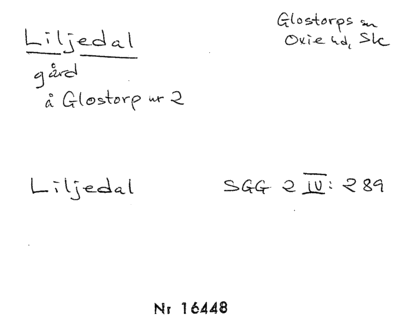 Liljedal
Glostorps sn
Oxie hd, Sk
gård
å Glostorp nr 2
Liljedal
SGG 2 IV: 289
Nr 16448